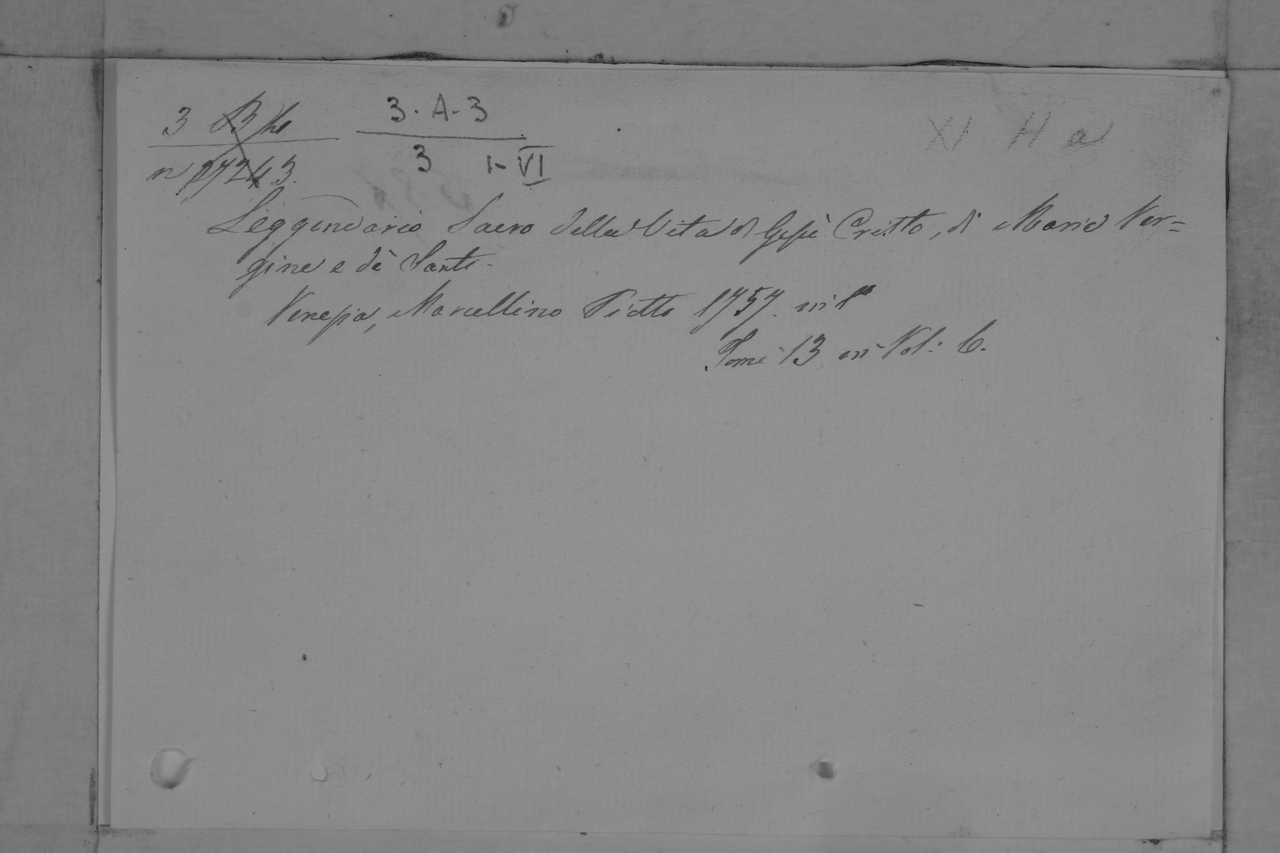 3 3-A-3 XI H a
3 1-VI
Leggendario Sacro della Vita di Gesù Cristo, di Maria Ver=
gine e dè Santi.
Venezia, Marcellino Piotto 1757. in 8°
Tomi 13 in Vol: 6.